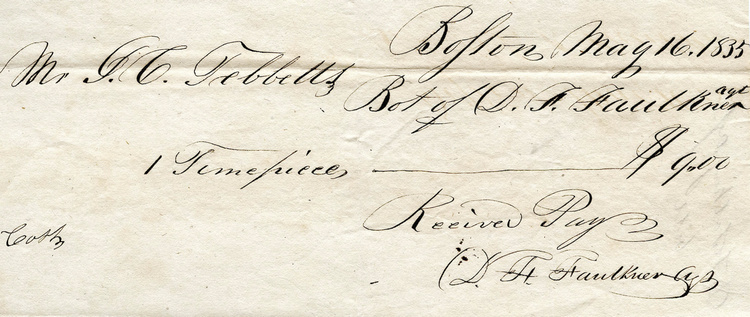 Boston, May 16. 1835
Mr G. C. Tebbetts
Bot of D. F. Faulkner agt
1 Timepiece $ 9.00
Received Pay
D. F. Faulkner agt